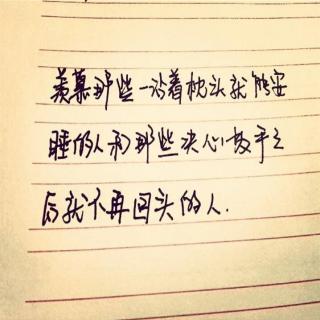 羡慕那些一沾着枕头就能安
睡的人和那些决心放手之
后就不再回头的人.